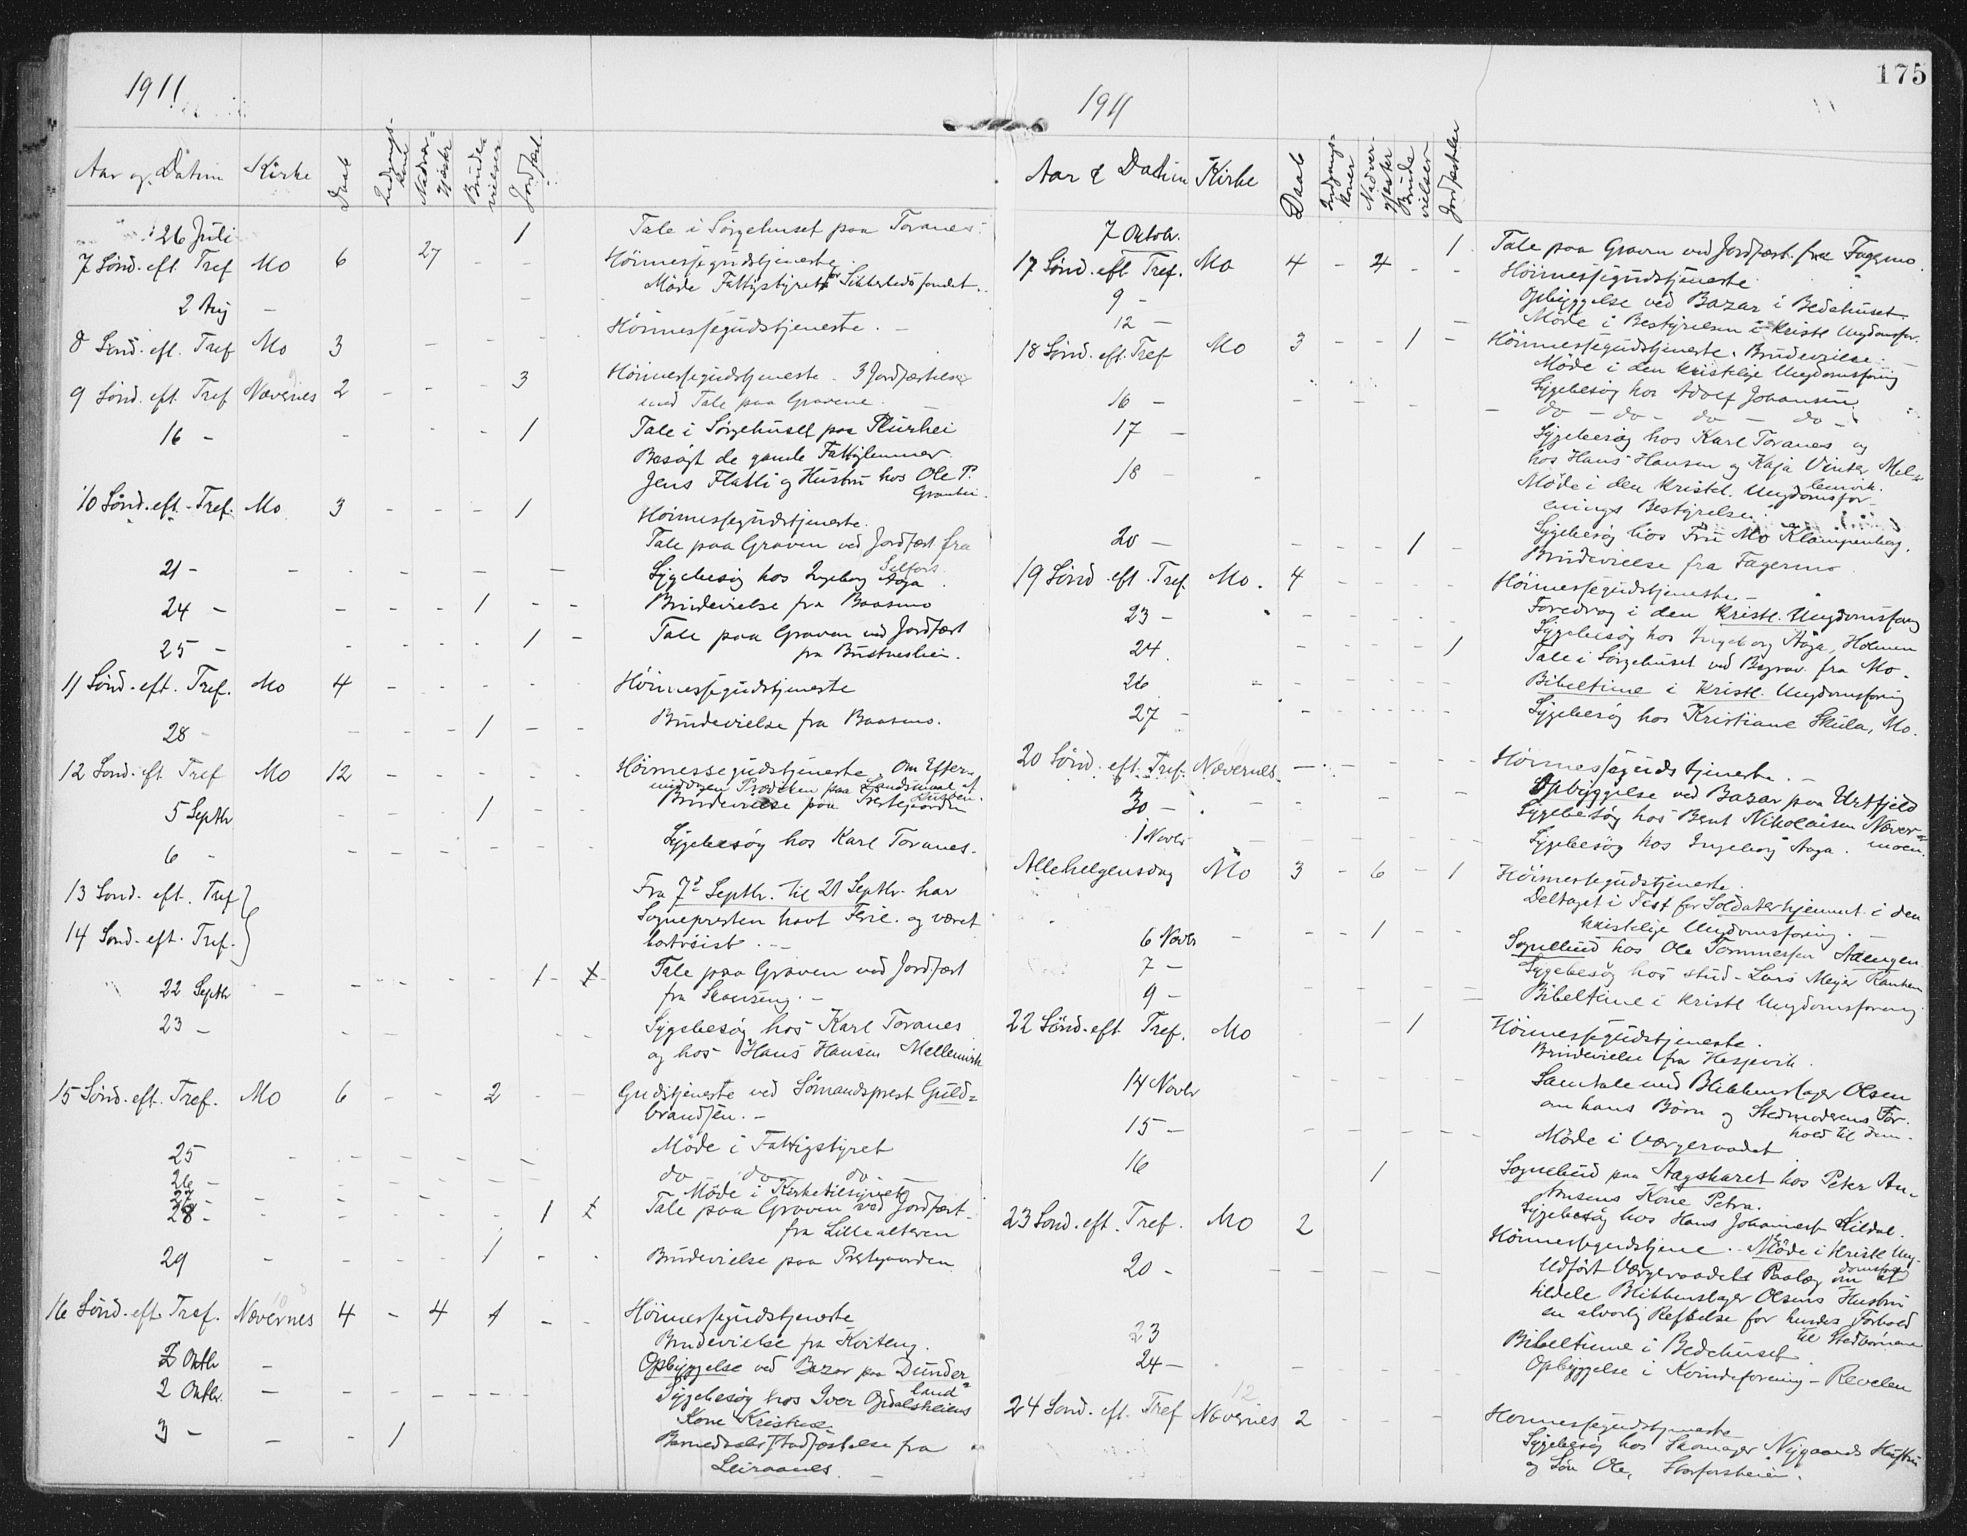 1911
Aar og Datum Kirke Daab Nadver- gjæster Brude- vielser Jordfæst.
26 Juli 1 Tale i Sørgehuset paa Toranes.
7 Sønd. eft. Tref Mo 6 27 - - Høimessegudstjeneste
2 Aug - Møde Fattigstyret for Sikkerhedsfondet.
8 Sønd. eft. Tref Mo 3 - - - Høimessegudstjeneste. -
9 Sønd. eft. Tref Nævernes 2 - - - 3 Høimessegudstjeneste - 3 Jordfæstelser
med Tale paa Gravene.
16 - - - - - 1 Tale i Sørgehuset paa
Besøgt de gamle Fattiglemmer
Jens Flatli og Hustru hos Ole P.
10 Sønd. eft. Tref. Mo 3 - - - 1 Høimessegudstjeneste.
Tale paa Graven ved Jordfæst fra
Selfors.
21 - - - - - - Sygebesøg hos Ingeborg Aaga.
24 - - - - 1 - - Brudevielse fra Baasmo
25 - - - - - 1 - Tale paa Graven ved Jordfæst
fra Bustneslien.
11 Sønd. eft. Tref. Mo 4 - - - - Høimessegudstjeneste
28 - - - - 1 - - Brudevielse fra Baasmo.
12 Sønd. eft Tref Mo 12 - - - - - Høimessegudstjeneste. Om Efter-
middagen Prædiken paa Landsmaal af
5 Septbr - - - 1 - - Brudevielse paa Prestegaarden
6 - - - - - - - Sygebesøg hos Karl Toranes.
13 Sønd. eft. Tref } Fra 7d Septbr. til 21 Septbr. har
14 Sønd. eft. Tref. } Sognepresten havt Ferie og været
bortreist. -
22 Septbr - - - - - 1 - Tale paa Graven ved Jordfæst
fra Skonseng. -
23 - - - - - Sygebesøg hos Karl Toranes
og hos Hans Hansen Mellemvik
15 Sønd. eft. Tref. Mo 6 - - 2 - - Gudstjeneste ved Sømandsprest Guld=
brandsen. -
25 - - - - - - Møde i Fattigstyret
26 - - - - - - do - do - do -
27 - - - - - Møde i Kirketilsynet
28 - - - - - 1 Tale paa Graven ved Jordfæst.
fra Lillealteren
29 - - - - 1 - - Brudevielse paa Prestgaarden
16 Sønd. eft. Tref. Nævernes 4 - 4 1 - - Høimessegudstjeneste
Brudevielse fra Kviteng.
2 Oktbr - Opbyggelse ved Bazar paa Dunder=
land
2 Oktbr. - - - - - - Sygebesøg hos Iver Ørdalsheiens
Kone Kristine
3 - - - 1 Barnedaabsstadfæstelse fra
Leiraanes. -
1911
175
Aar & Datum Kirke Daab Indgangs- koner Nadver- gjæster Brude vielser Jordfæstelser
7 Oktobr. 1 Tale paa Graven ved Jordfæst. fra Fagermo.
17 Sønd. eft. Tref. Mo 4 - 4 - - Høimessegudstjeneste
9 - Opbyggelse ved Bazar i Bedehuset
12 - - Møde i Bestyrelsen i Kristl Ungdomsfor.
18 Sønd. eft. Tref Mo 3 - - 1 - Høimessegudstjeneste. Brudevielse. -
Møde i den kristelige Ungdomsforing
16 - - - - - - Sygebesøg hos Adolf Johansen.
- do - do - do - do -
17 - Sygebesøg hos Karl Toranes og
hos Hans Hansen og Kaja Vinter Mel=
lemvik.
18 - Møde i den kristel. Ungdomsfor
enings Bestyrelse.
Sygebesøg hos Fru Mo Klampenborg.
20 - - - - 1 - Brudevielse fra Fagermo.
19 Sønd. eft. Tref. Mo. 4 - - - - Høimessegudstjeneste. -
23 - - - - - Foredrag i den kristl. Ungdomsforng
Sygebesøg hos Ingeborg Aaga, Holmen
24 - - - - 1 Tale i Sørgehuset ved Begrav. fra Mo.
26 - - - - - Bibeltime i kristl. Ungdomsforing
27 - - - - - - Sygebesøg hos Kristiane Skula, Mo.
20 Sønd. eft. Tref. Nævernes - - - - - Høimessegudstjeneste. -
30 - - - - - Opbyggelse ved Bazar paa Urtfjeld
Sygebesøg hos Bent Nikolaisen Næver=
moen.
1 Novbr - - - - - Sygebesøg hos Ingeborg Aaga.
Allehelgensdag Mo 3 - 6 - 1 Høimessegudstjeneste.
Deltaget i Fest for Soldaterhjemmet i den
kristelige Ungdomsforing. -
6 Novbr - - - 1 - - Sognebud hos Ole Tommessen Aaengen
7 - Sygebesøg hos stud. Lars Mejer
9 - - - - - Bibeltime i kristl Ungdomsforening
22 Sønd. eft. Tref. Mo - 1 Høimessegudstjeneste.
Brudevielse fra Hesjevik.
14 Novbr - - - - - Samtale med Blikkenslager Olsen
om hans Børn og Stedmoderens For-
hold til dem.
15 - - - - - - Møde i Værgeraadet
16 1 Sognebud paa Aagskaret hos Peter An-
Kone Petra.
Sygebesøg hos Hans Johannes Kildal.
23 Sønd. eft. Tref. Mo 2 Høimessegudstjene. - Møde i kristl Ung-
domsfor
20 - - - - - - Udført Værgeraadets Paalæg om at
tildele Blikkenslager Olsens Hustru
en alvorlig Refselse for hendes Forhold
til Stedbørnene
23 Bibeltime i Bedehuset.
24 - - - - - Opbyggelse i Kvindeforening - Revelen
24 Sønd. eft. Tref Nævernes 2 - - - - Høimessegudstjeneste
Sygebesøg hos Skomager Nygaards Hustru
og Søn Ole, Storforsheien.